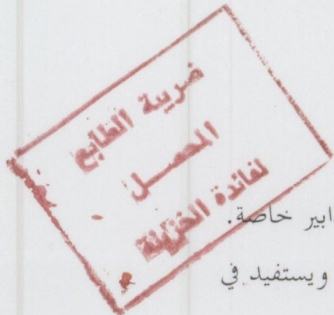 ضريبة الطابع
المحصل
لفائدة الخزينة
ابير خاصة.
ويستفيد في